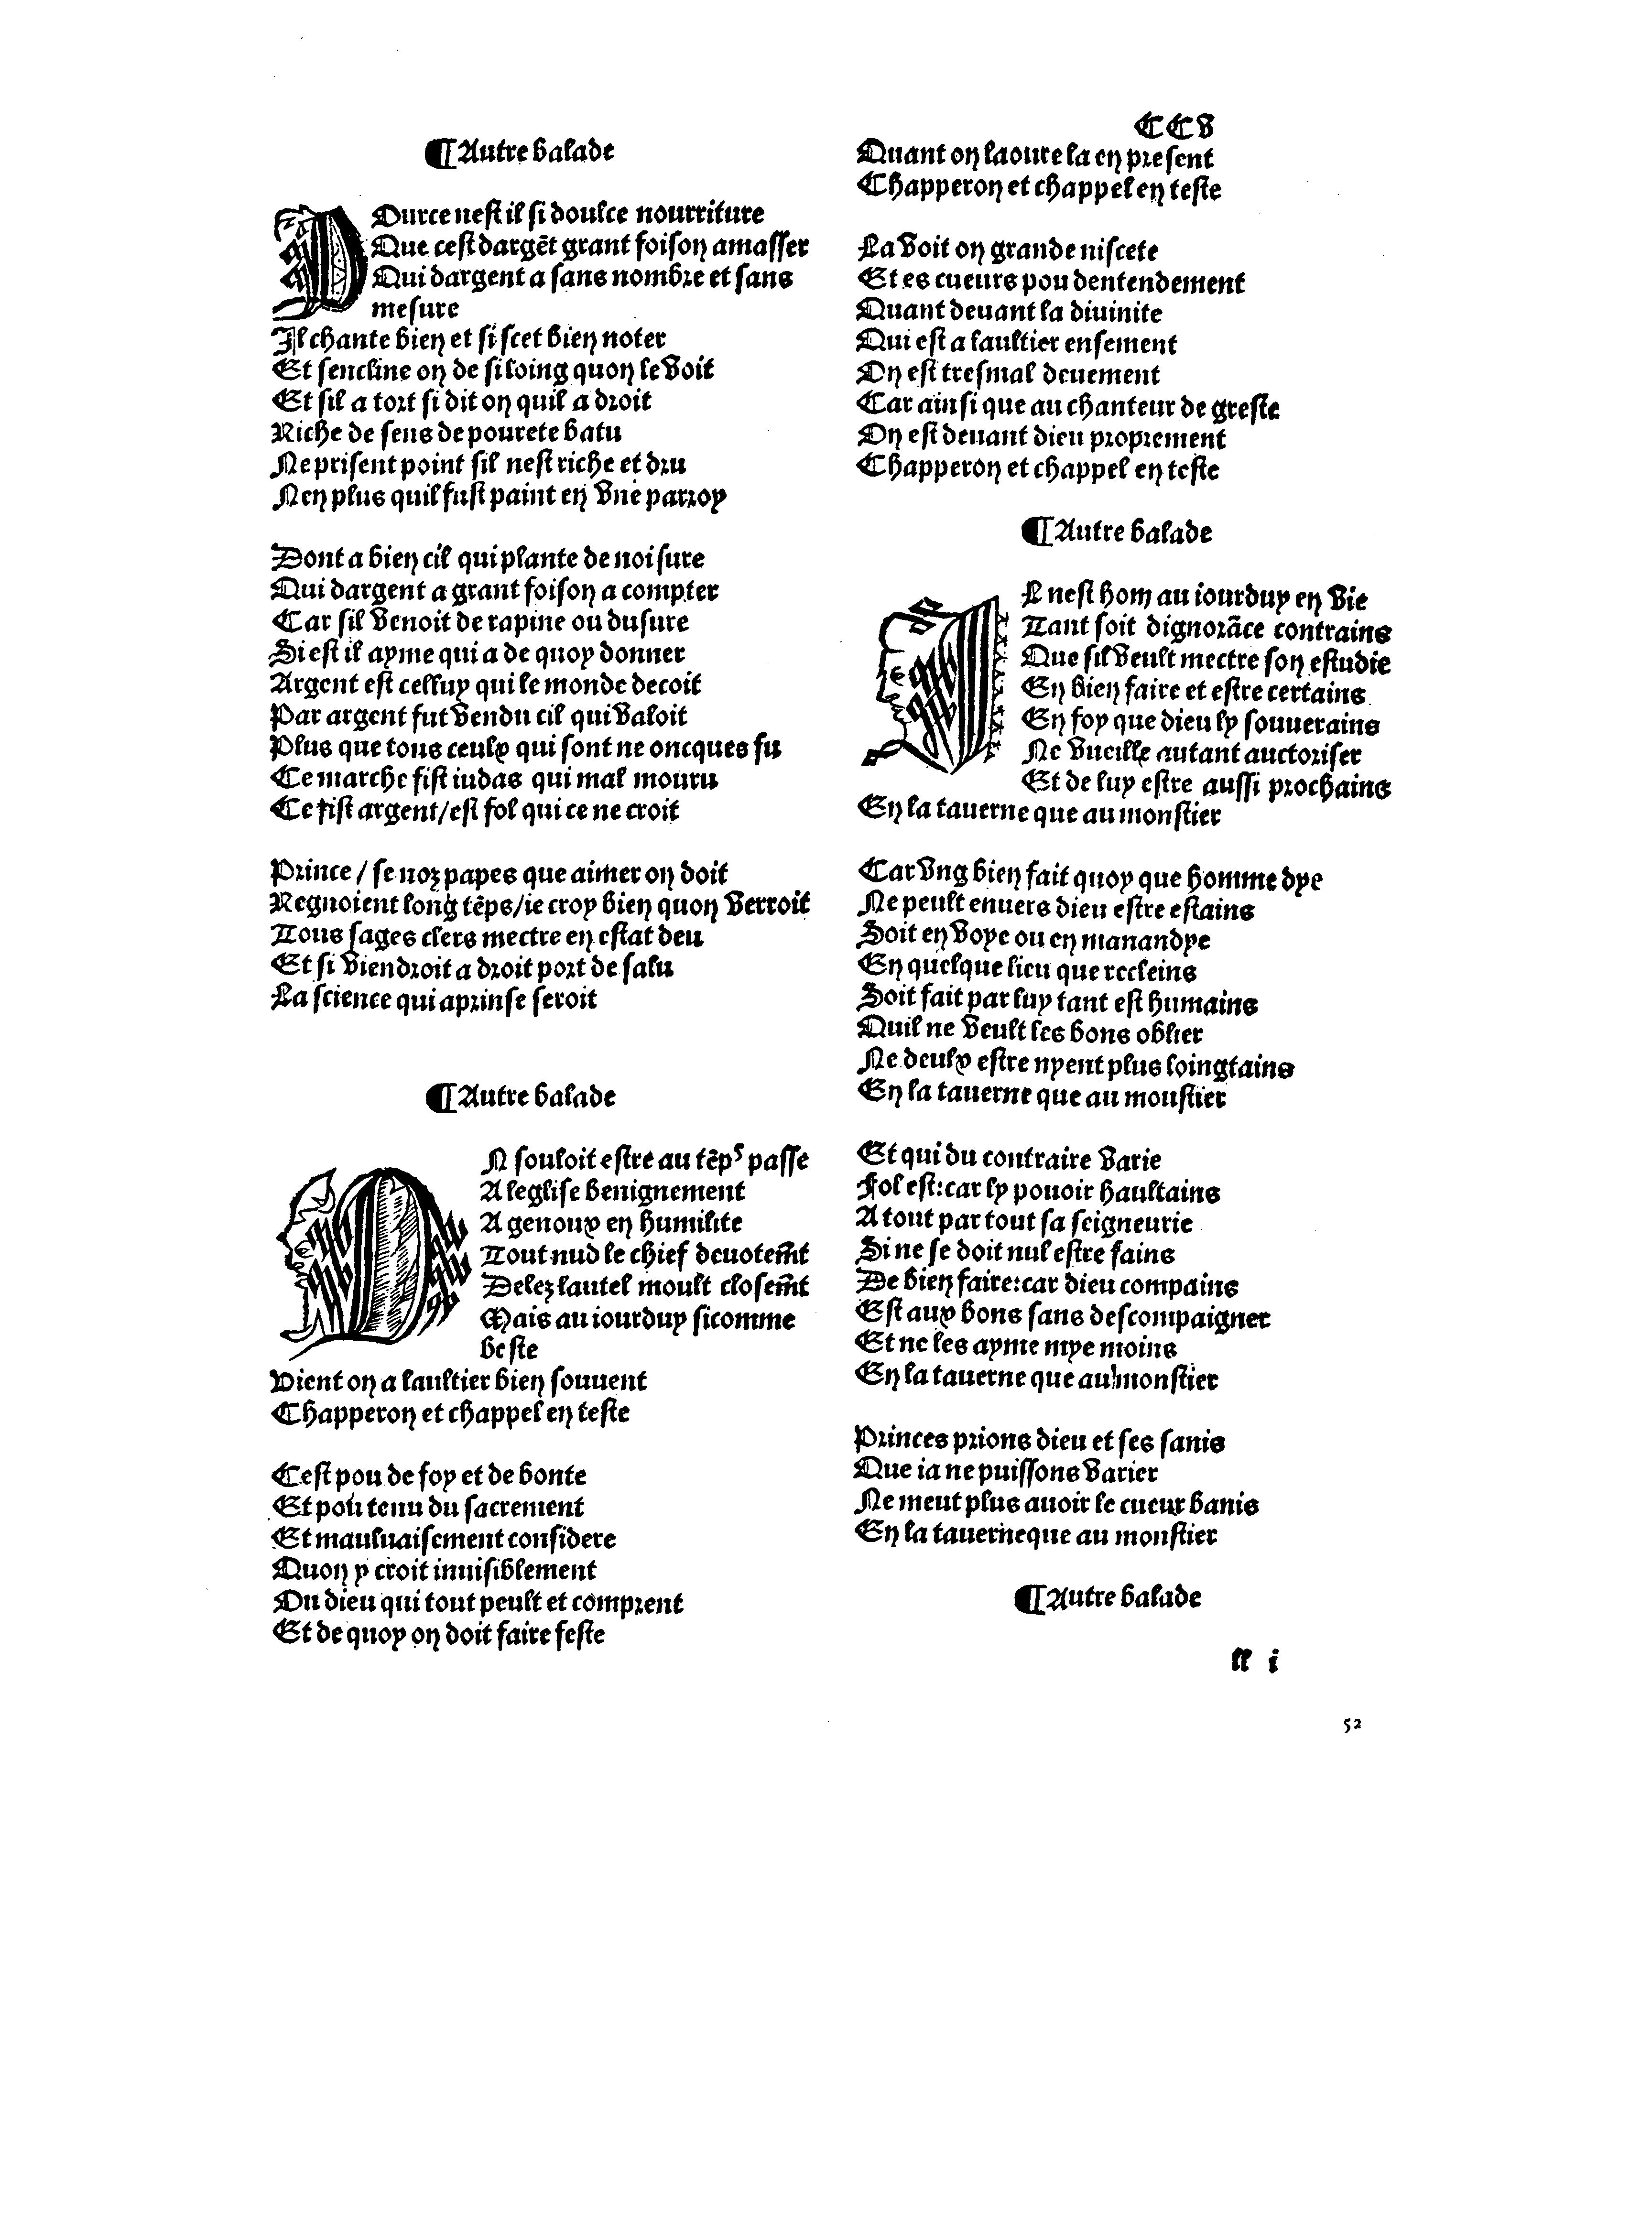 ¶Autre balade
POurce nest il si doulce nourriture
Que cest dargēt grant foison amasser
Qui dargent a sans nombre et sans
mesure
Il chante bien et si scet bien noter
Et sencline on de si loing quon le voit
Et sil a tort si dit on quil a droit
Riche de sens de pourete batu
Ne prisent point sil nest riche et dru
Nen plus quil fust paint en vne parroy
Dont a bien cil qui plante de noisure
Qui dargent a grant foison a compter
Car sil venoit de rapine ou dusure
Si est il ayme qui a de quoy donner
Argent est celluy qui le monde decoit
Par argent fut vendu cil qui valoit
Plus que tous ceulx qui sont ne oncques fu
Ce marche fist iudas qui mal mouru
Ce fist argent/est fol qui ce ne croit
Prince / se noz papes que aimer on doit
Regnoient long tēps/ie croy bien quon verroit
Tous sages clers mectre en estat deu
Et si viendroit a droit port de salu
La science qui aprinse seroit
¶Autre balade
ON souloit estre au tēpˢ passe
A leglise benignement
A genoux en humilite
Tout nud le chief deuotem̄t
Delez lautel moult closem̄t
Mais au iourduy sicomme
beste
Vient on a laultier bien souuent
Chapperon et chappel en teste
Cest pou de foy et de bonte
Et pou tenu du sacrement
Et mauluaisement considere
Quon y croit inuisiblement
Du dieu qui tout peult et comprent
Et de quoy on doit faire feste
CCV
Quant on laoure la en present
Chapperon et chappel en teste
La voit on grande niscete
Et es cueurs pou dentendement
Quant deuant la diuinite
Qui est a laultier ensement
On est tresmal deuement
Car ainsi que au chanteur de greste
On est deuant dieu proprement
Chapperon et chappel en teste
¶Autre balade
IL nest hom au iourduy en vie
Tant soit dignorāce contrains
Que sil veult mectre son estudie
En bien faire et estre certains
En foy que dieu ly souuerains
Ne vueille autant auctoriser
Et de luy estre aussi prochains
En la tauerne que au monstier
Car vng bien fait quoy que homme dye
Ne peult enuers dieu estre estains
Soit en voye ou en manandye
En quelque lieu que recleins
Soit fait par luy tant est humains
Quil ne veult les bons oblier
Ne deulx estre nyent plus loingtains
En la tauerne que au moustier
Et qui du contraire varie
Fol est:car ly pouoir haultains
A tout par tout sa seigneurie
Si ne se doit nul estre fains
De bien faire:car dieu compains
Est aux bons sans descompaigner
Et ne les ayme mye moins
En la tauerne que au monstier
Princes prions dieu et ses sanis
Que ia ne puissons varier
Ne meut plus auoir le cueur banis
En la tauerneque au monstier
¶Autre balade
ll i
52